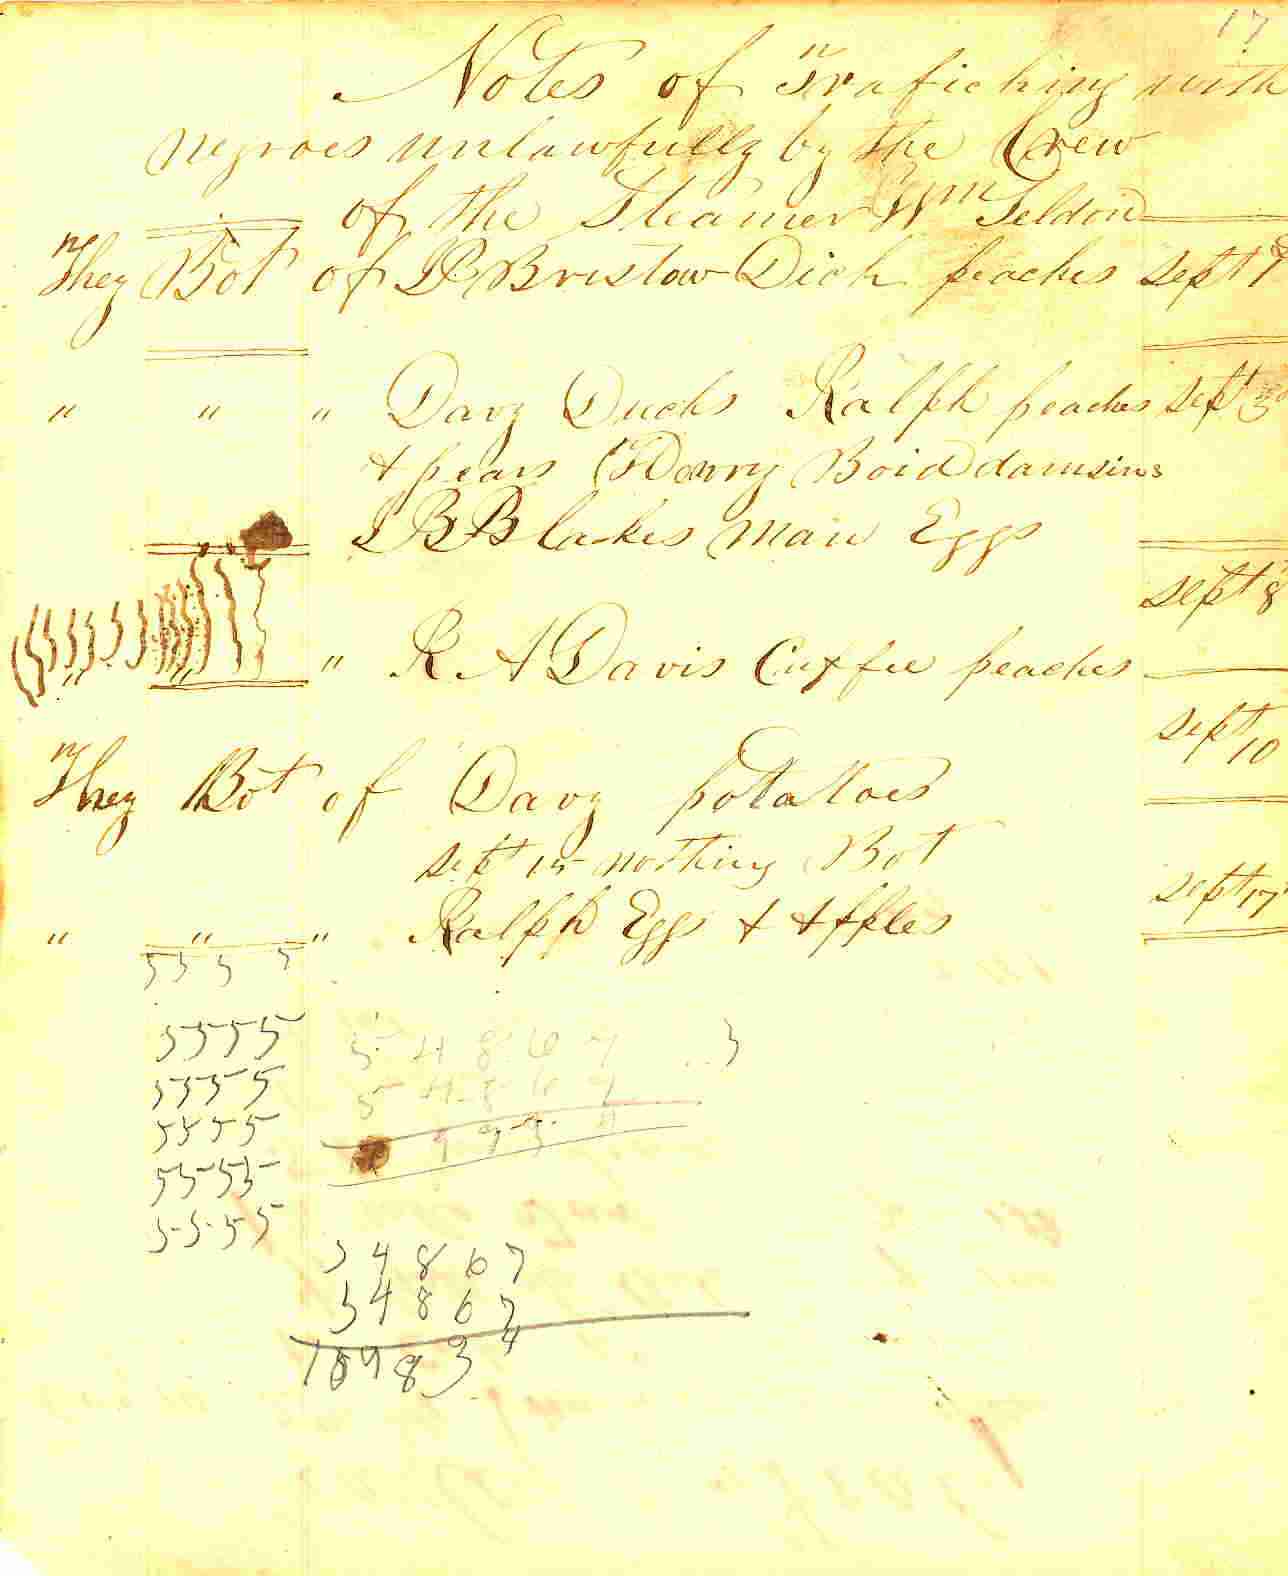 17
Notes of Trafficking with
negroes unlawfully by the Crew
of the Steamer Wm Seldon
They Bot of Bristow Dick peaches Sept
" " " Davy Ducks Ralph peaches Sept
& pears Henry Boid damsins
L B Blakes man Eggs
Sept 8
" " " R A Davis Cuffee peaches
Sept 10
They Bot of Davy potatoes
Sept 15 nothing Bot
Sept 17
" " " Ralph Eggs & Apples
5 5 5 5
5 5 5 5
5 5 5 5
5 5 5 5
5 5 5 5
5 5 5 5
5 4 8 6 7
5 4 8 6 7
5 4 8 6 7
5 4 8 6 7
1 0 9 8 3 4